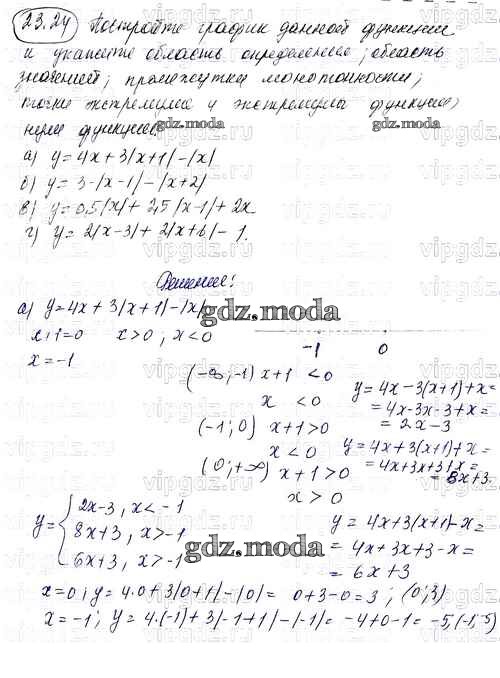 23.24 Постройте график данной функции
и укажите область определения; область
значений; промежутки монотонности;
точки экстремума и экстремума функции,
нули функции.
а) y=4x+3|x+1|-|x|
б) y=3-|x-1|-|x+2|
в) y=0,5|x|+2,5|x-1|+2x
г) y=2|x-3|+2|x+6|-1.
Решение:
а) y=4x+3|x+1|-|x|
x+1=0 x>0; x<0
x=-1
-1 0
(-∞;-1) x+1 <0
x <0
y=4x-3(x+1)+x=
=4x-3x-3+x=
=2x-3
(-1;0) x+1>0
x<0
y=4x+3(x+1)+x=
=4x+3x+3+x=
=8x+3
(0;+∞) x+1>0
x>0
y=4x+3(x+1)-x=
=4x+3x+3-x=
=6x+3
y= { 2x-3, x<-1
8x+3, x>-1
6x+3, x>-1
x=0; y=4.0+3|0+1|-|0|= 0+3-0=3; (0;3)
x=-1; y=4.(-1)+3|-1+1|-|-1|=-4+0-1=-5,(-1;-5)
gdz.moda
gdz.moda
gdz.moda
gdz.moda
vipgdz.ru